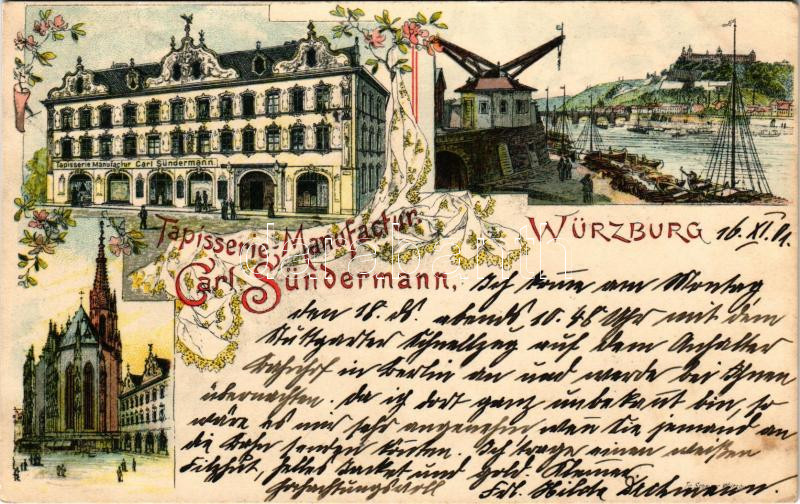 Tapisserie Manufactur Carl Sündermann
Tapisserie-Manufactur
Carl Sündermann,
WÜRZBURG 16. XI. 01.
Ich komme am Montag
den 18. ds. abends 10.48 Uhr mit dem
Stuttgarter Schnellzug auf dem Anhalter
Bahnhof in Berlin an und werde bei Ihnen
übernachten. Da ich dort ganz unbekant bin, so
wäre es mir sehr angenehm wen Sie jemand an
die Bahn senden könten. Ich trage einen weißen
Filzhut, helles Jacket und gold. Klemmer.
Hochachtungsvoll
Frl. Hilda